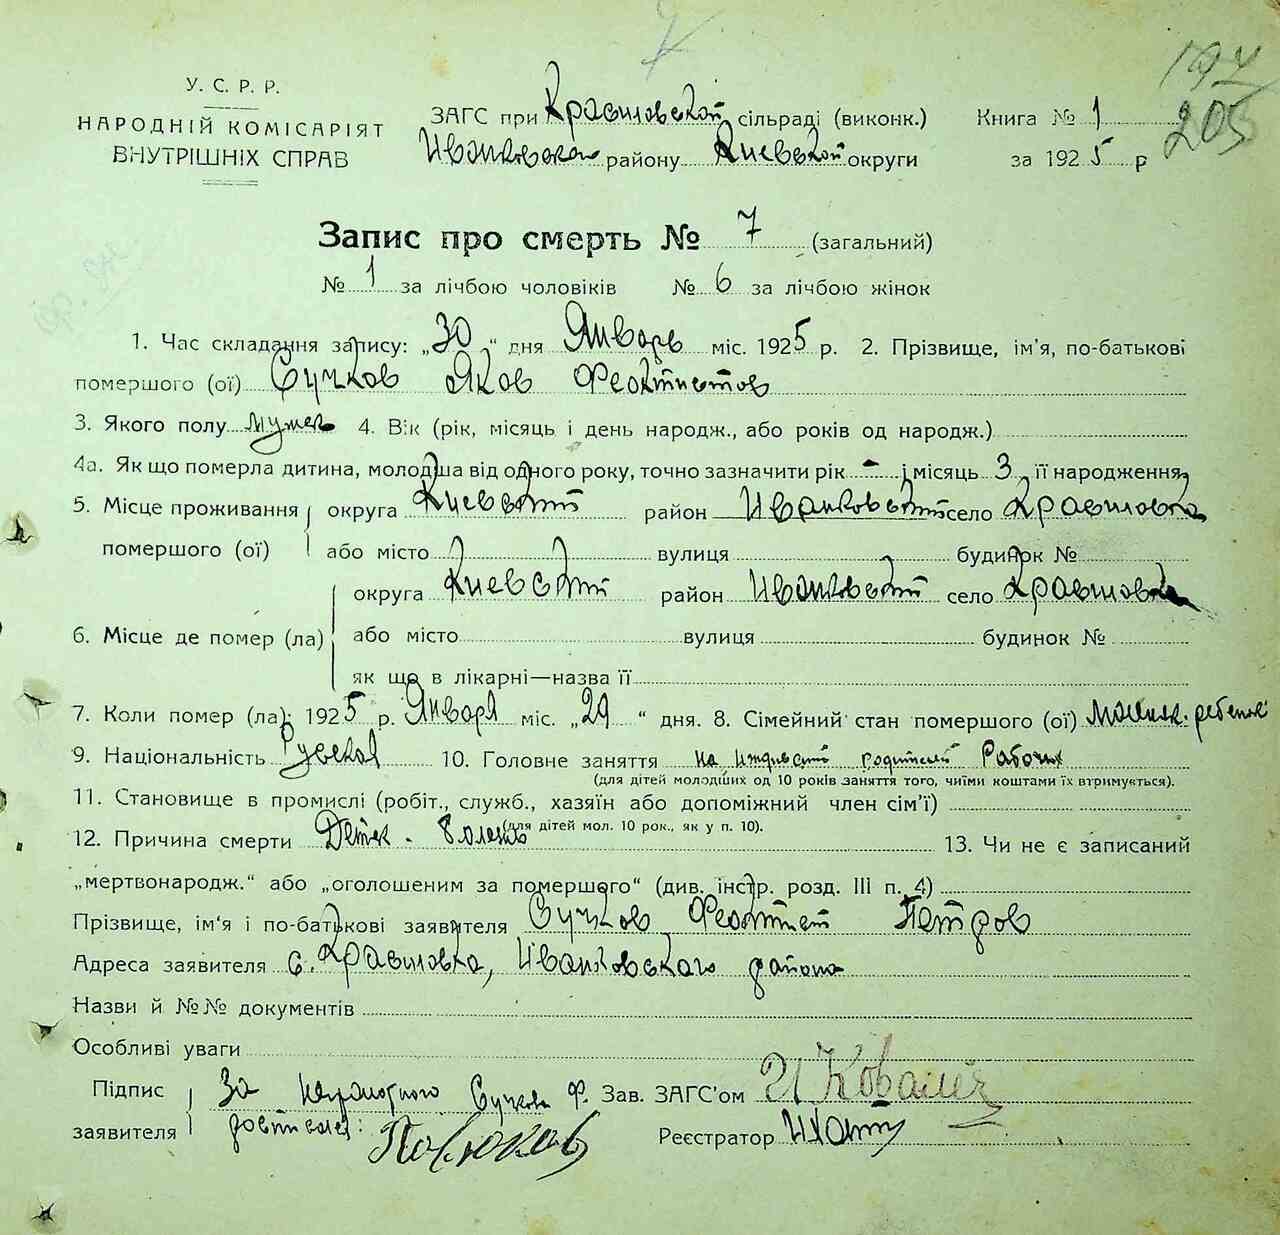 194
205
У. С. Р. Р.
НАРОДНІЙ КОМІСАРІЯТ
ВНУТРІШНІХ СПРАВ
ЗАГС при Кравиловской сільраді (виконк.)
Иванковском району Киевской округи
Книга № 1
за 1925 р
Запис про смерть № 7 (загальний)
№ 1 за лічбою чоловіків № 6 за лічбою жінок
1. Час складання запису: „30“ дня Январь міс. 1925 р. 2. Прізвище, ім'я, по-батькові
помершого (ої) Сучков Яков Феоктистов
3. Якого полу мужск 4. Вік (рік, місяць і день народж., або років од народж.)
4а. Як що померла дитина, молодша від одного року, точно зазначити рік - і місяць 3 її народження
5. Місце проживання округа Киевский район Иванковский село Кравиловка
помершого (ої) або місто вулиця будинок №
округа Киевский район Иванковский село Кравиловка
6. Місце де помер (ла) або місто вулиця будинок №
як що в лікарні—назва її
7. Коли помер (ла): 1925 р. Января міс. „29“ дня. 8. Сімейний стан помершого (ої) ребенок
9. Національність Русской 10. Головне заняття на иждивении родителей Рабочих
(для дітей молодших од 10 років заняття того, чиїми коштами їх втримується).
11. Становище в промислі (робіт., служб., хазяїн або допоміжний член сім'ї)
(для дітей мол. 10 рок., як у п. 10).
12. Причина смерти Детск. болезнь 13. Чи не є записаний
„мертвонародж.“ або „оголошеним за помершого“ (див. інстр. розд. III п. 4)
Прізвище, ім'я і по-батькові заявителя Сучков Феоктист Петров
Адреса заявителя с. Кравиловка, Иванковского района
Назви й №№ документів
Особливі уваги
Підпис За неграмотного Сучкова Ф. Зав. ЗАГС'ом И Ковалец
заявителя Реєстратор